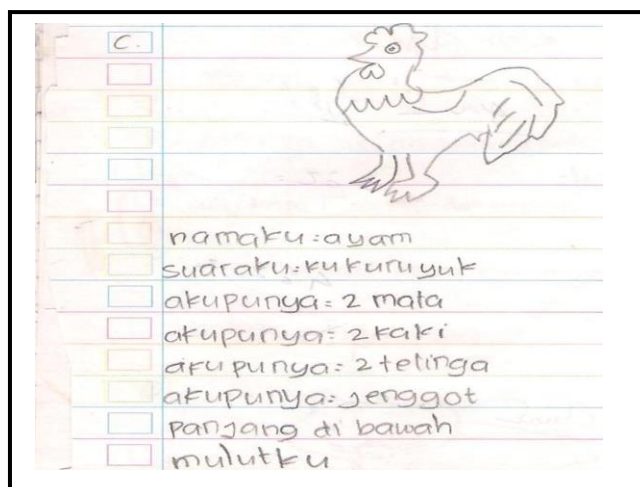 C.
namaku : ayam
suaraku : kukuruyuk
akupunya = 2 mata
akupunya = 2 kaki
akupunya = 2 telinga
akupunya = jenggot
panjang di bawah
mulutku